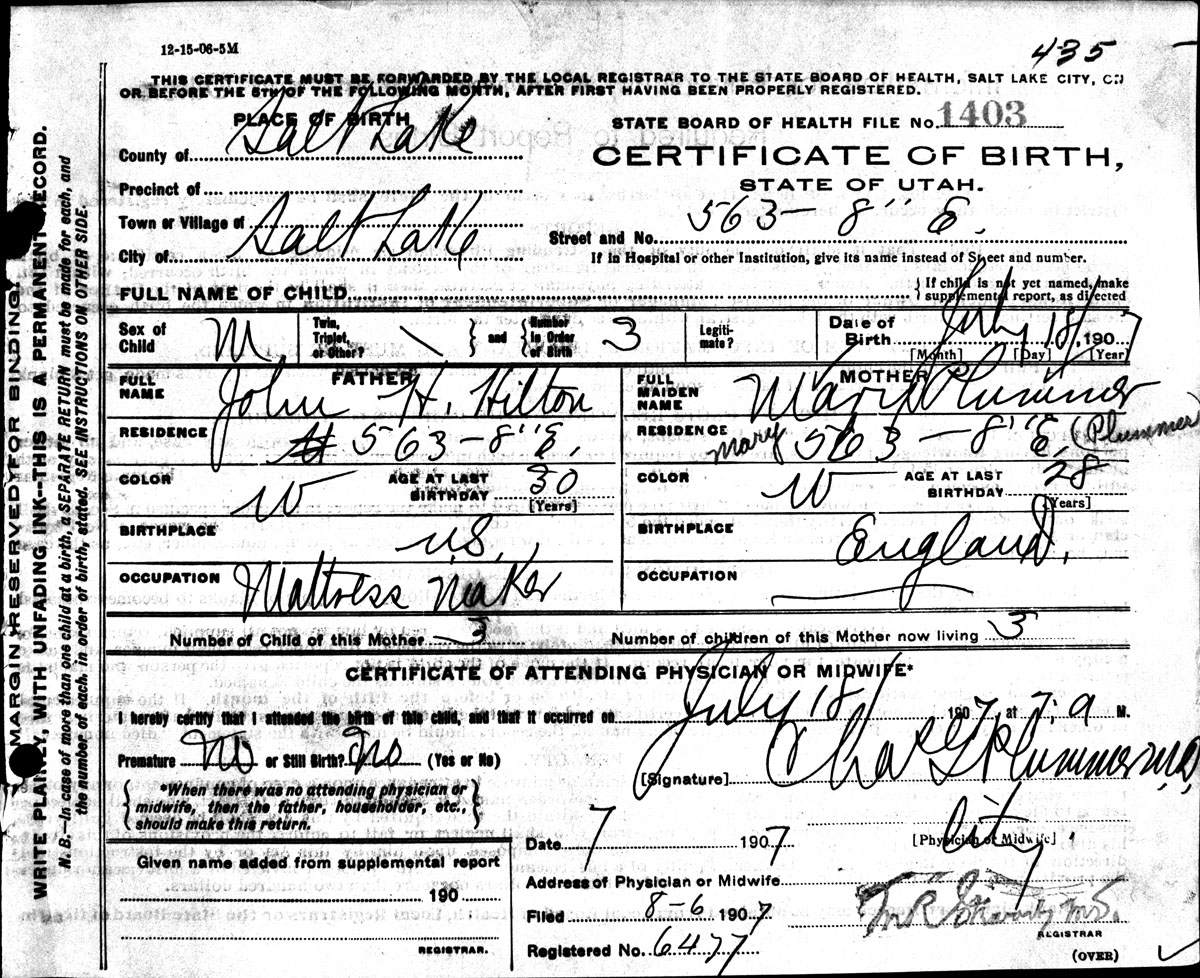 12-15-06-5M
435
THIS CERTIFICATE MUST BE FORWARDED BY THE LOCAL REGISTRAR TO THE STATE BOARD OF HEALTH, SALT LAKE CITY, ON
OR BEFORE THE 5TH OF THE FOLLOWING MONTH, AFTER FIRST HAVING BEEN PROPERLY REGISTERED.
PLACE OF BIRTH
STATE BOARD OF HEALTH FILE No. 1403
County of Salt Lake
CERTIFICATE OF BIRTH,
STATE OF UTAH.
Precinct of
Town or Village of
Street and No. 563 - 8" E.
City of Salt Lake
If in Hospital or other Institution, give its name instead of Street and number.
FULL NAME OF CHILD
{ If child is not yet named, make supplemental report, as directed
Sex of Child M.
Twin, Triplet, or Other? \ } and { Number in Order of Birth 3
Legitimate?
Date of Birth July 18 1907
[Month] [Day] [Year]
FATHER
FULL NAME John H. Hilton
MOTHER
FULL MAIDEN NAME Mary Plummer
RESIDENCE 563 - 8" E.
RESIDENCE 563 - 8" E.
Mary (Plummer)
COLOR W AGE AT LAST BIRTHDAY 30 [Years]
COLOR W AGE AT LAST BIRTHDAY 28 [Years]
BIRTHPLACE U.S.
BIRTHPLACE England.
OCCUPATION Mattress Maker
OCCUPATION
Number of Child of this Mother 3
Number of children of this Mother now living 3
CERTIFICATE OF ATTENDING PHYSICIAN OR MIDWIFE*
I hereby certify that I attended the birth of this child, and that it occurred on July 18/ 1907 at 7 a M.
Premature No or Still Birth? No (Yes or No)
[Signature] Chas G Plummer M.D.
*When there was no attending physician or midwife, then the father, householder, etc., should make this return.
[Physician or Midwife]
Date 7 1907
Given name added from supplemental report
190
REGISTRAR.
Address of Physician or Midwife City.
Filed 8-6 1907
REGISTRAR
Registered No. 6477
(OVER)
MARGIN RESERVED FOR BINDING
WRITE PLAINLY, WITH UNFADING INK--THIS IS A PERMANENT RECORD.
N. B.—In case of more than one child at a birth, a SEPARATE RETURN must be made for each, and
the number of each, in order of birth, stated. SEE INSTRUCTIONS ON OTHER SIDE.